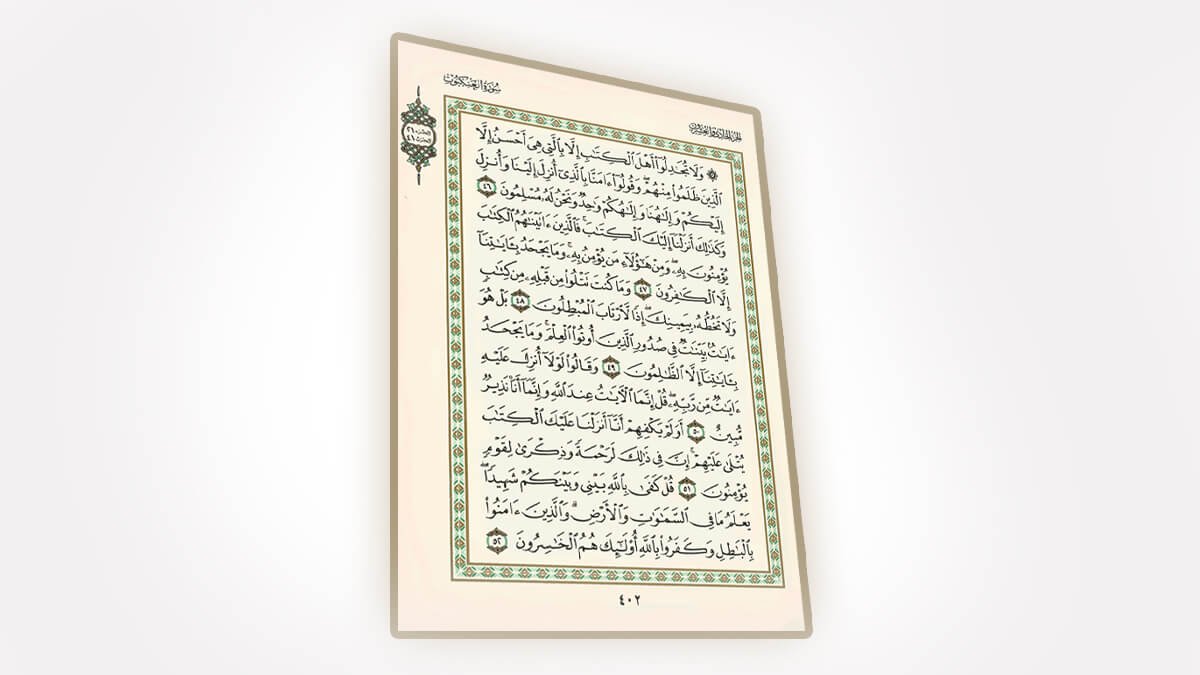 الجزء الحادي والعشرون
سُورَةُ العَنكَبُوتِ
الجزء ٢١
الحزب ٤١
۞ وَلَا تُجَٰدِلُوٓاْ أَهۡلَ ٱلۡكِتَٰبِ إِلَّا بِٱلَّتِي هِيَ أَحۡسَنُ إِلَّا
ٱلَّذِينَ ظَلَمُواْ مِنۡهُمۡۖ وَقُولُوٓاْ ءَامَنَّا بِٱلَّذِيٓ أُنزِلَ إِلَيۡنَا وَأُنزِلَ
إِلَيۡكُمۡ وَإِلَٰهُنَا وَإِلَٰهُكُمۡ وَٰحِدٞ وَنَحۡنُ لَهُۥ مُسۡلِمُونَ ٤٦
وَكَذَٰلِكَ أَنزَلۡنَآ إِلَيۡكَ ٱلۡكِتَٰبَۚ فَٱلَّذِينَ ءَاتَيۡنَٰهُمُ ٱلۡكِتَٰبَ
يُؤۡمِنُونَ بِهِۦۖ وَمِنۡ هَٰٓؤُلَآءِ مَن يُؤۡمِنُ بِهِۦۚ وَمَا يَجۡحَدُ بِـَٔايَٰتِنَآ
إِلَّا ٱلۡكَٰفِرُونَ ٤٧ وَمَا كُنتَ تَتۡلُواْ مِن قَبۡلِهِۦ مِن كِتَٰبٖ
وَلَا تَخُطُّهُۥ بِيَمِينِكَۖ إِذٗا لَّٱرۡتَابَ ٱلۡمُبۡطِلُونَ ٤٨ بَلۡ هُوَ
ءَايَٰتُۢ بَيِّنَٰتٞ فِي صُدُورِ ٱلَّذِينَ أُوتُواْ ٱلۡعِلۡمَۚ وَمَا يَجۡحَدُ
بِـَٔايَٰتِنَآ إِلَّا ٱلظَّٰلِمُونَ ٤٩ وَقَالُواْ لَوۡلَآ أُنزِلَ عَلَيۡهِ
ءَايَٰتٞ مِّن رَّبِّهِۦۚ قُلۡ إِنَّمَا ٱلۡأٓيَٰتُ عِندَ ٱللَّهِ وَإِنَّمَآ أَنَا۠ نَذِيرٞ
مُّبِينٌ ٥٠ أَوَلَمۡ يَكۡفِهِمۡ أَنَّآ أَنزَلۡنَا عَلَيۡكَ ٱلۡكِتَٰبَ
يُتۡلَىٰ عَلَيۡهِمۡۚ إِنَّ فِي ذَٰلِكَ لَرَحۡمَةٗ وَذِكۡرَىٰ لِقَوۡمٖ
يُؤۡمِنُونَ ٥١ قُلۡ كَفَىٰ بِٱللَّهِ بَيۡنِي وَبَيۡنَكُمۡ شَهِيدٗاۖ
يَعۡلَمُ مَا فِي ٱلسَّمَٰوَٰتِ وَٱلۡأَرۡضِۗ وَٱلَّذِينَ ءَامَنُواْ
بِٱلۡبَٰطِلِ وَكَفَرُواْ بِٱللَّهِ أُوْلَٰٓئِكَ هُمُ ٱلۡخَٰسِرُونَ ٥٢
٤٠٢